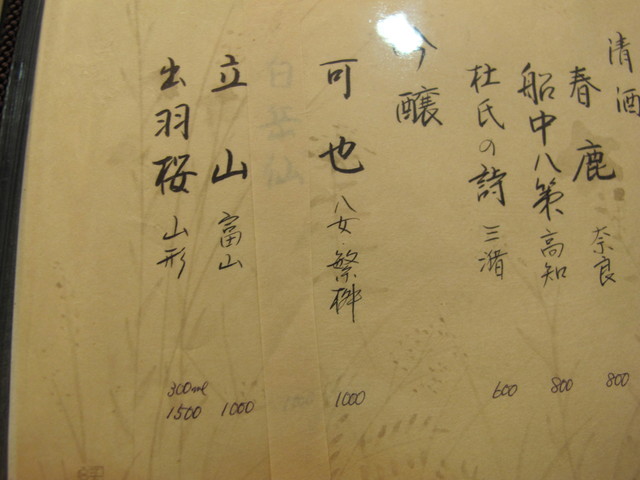 清酒
春鹿 奈良 800
船中八策 高知 800
杜氏の詩 三潴 600
吟醸
可也 八女・繁桝 1000
立山 富山 1000
出羽桜 山形 300ml 1500